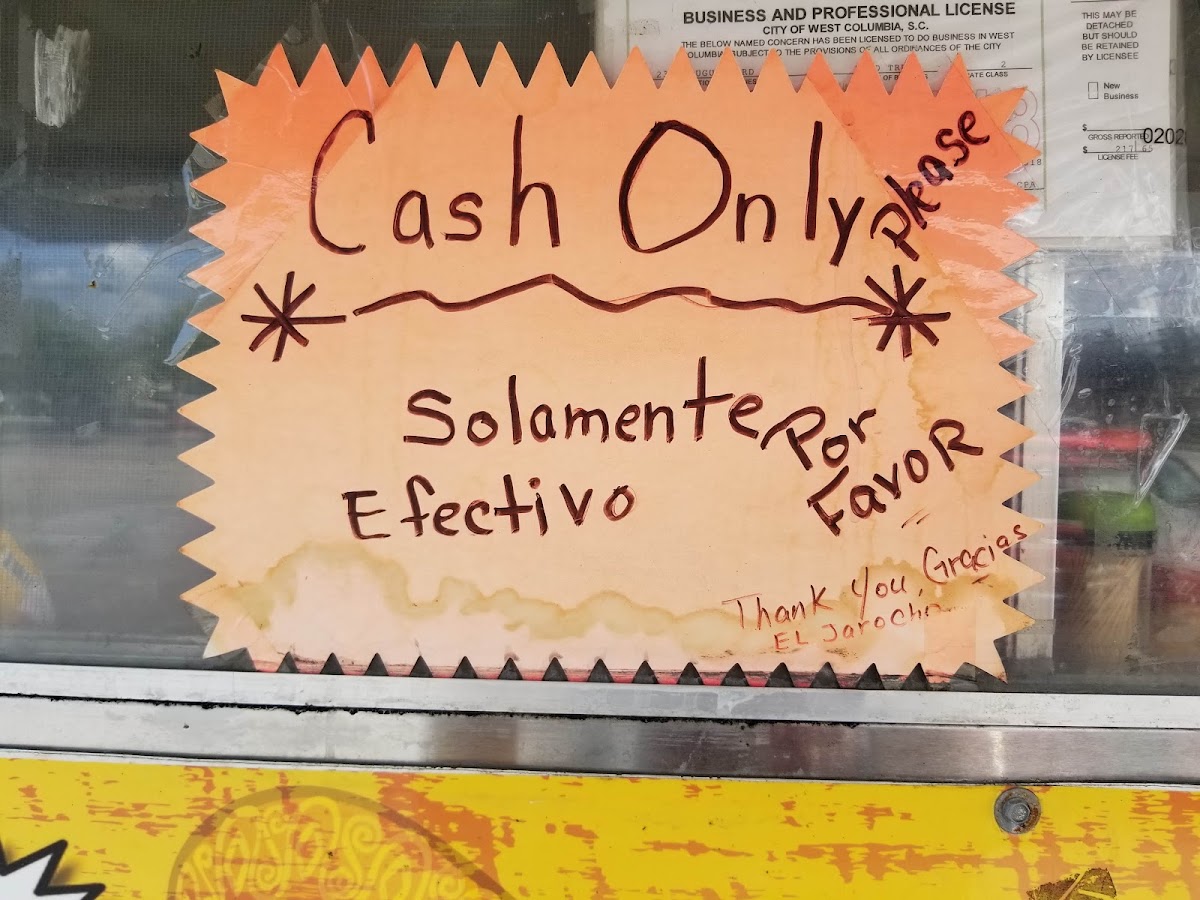 BUSINESS AND PROFESSIONAL LICENSE
CITY OF WEST COLUMBIA, S.C.
THE BELOW NAMED CONCERN HAS BEEN LICENSED TO DO BUSINESS IN WEST
SUBJECT TO THE PROVISIONS OF ALL ORDINANCES OF THE CITY
2
CLASS
THIS MAY BE
DETACHED
BUT SHOULD
BE RETAINED
BY LICENSEE
New
Business
$
GROSS REPORTED
$
LICENSE FEE
Cash Only
Please
Solamente
Efectivo
Por
Favor
Thank You, Gracias
EL Jarocho